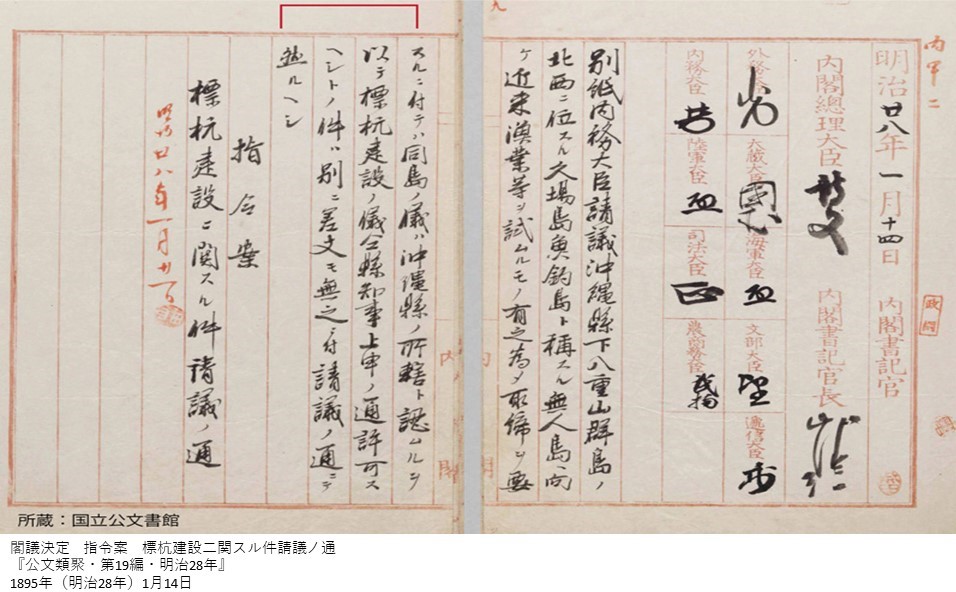 内甲二
明治廿八年一月十四日 内閣書記官
内閣總理大臣 内閣書記官長
外務大臣 大蔵大臣 海軍大臣 文部大臣 遞信大臣
内務大臣 陸軍大臣 司法大臣 農商務大臣
別紙内務大臣請議沖縄縣下八重山群島ノ
北西ニ位スル久場島魚釣島ト稱スル無人島ヘ向
ケ近来漁業等ヲ試ムルモノ有之為メ取締ヲ要
スルニ付テハ同島ノ儀ハ沖縄縣ノ所轄ト認ムルヲ
以テ標杭建設ノ儀仝縣知事上申ノ通許可ス
ヘシトノ件ハ別ニ差支モ無之ニ付請議ノ通ニテ
然ルヘシ
指令案
標杭建設ニ関スル件請議ノ通
明治廿八年一月廿一日
所蔵：国立公文書館
閣議決定　指令案　標杭建設ニ関スル件請議ノ通
『公文類聚・第19編・明治28年』
1895年（明治28年）1月14日